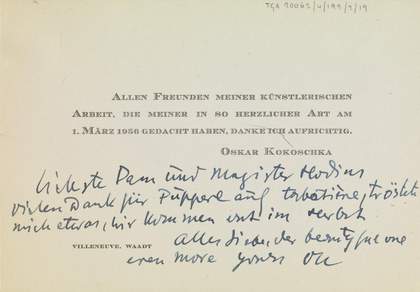 TGA 20062/4/192/2/19
ALLEN FREUNDEN MEINER KÜNSTLERISCHEN
ARBEIT, DIE MEINER IN SO HERZLICHER ART AM
1. MÄRZ 1956 GEDACHT HABEN, DANKE ICH AUFRICHTIG.
OSKAR KOKOSCHKA
Liebste Pam und Magister Hodins
vielen Dank für Pupperl auf tabatière, tröstet
mich etwas, wir kommen erst im Herbst
alles Liebe, der beautyful one
even more yours OK
VILLENEUVE, WAADT